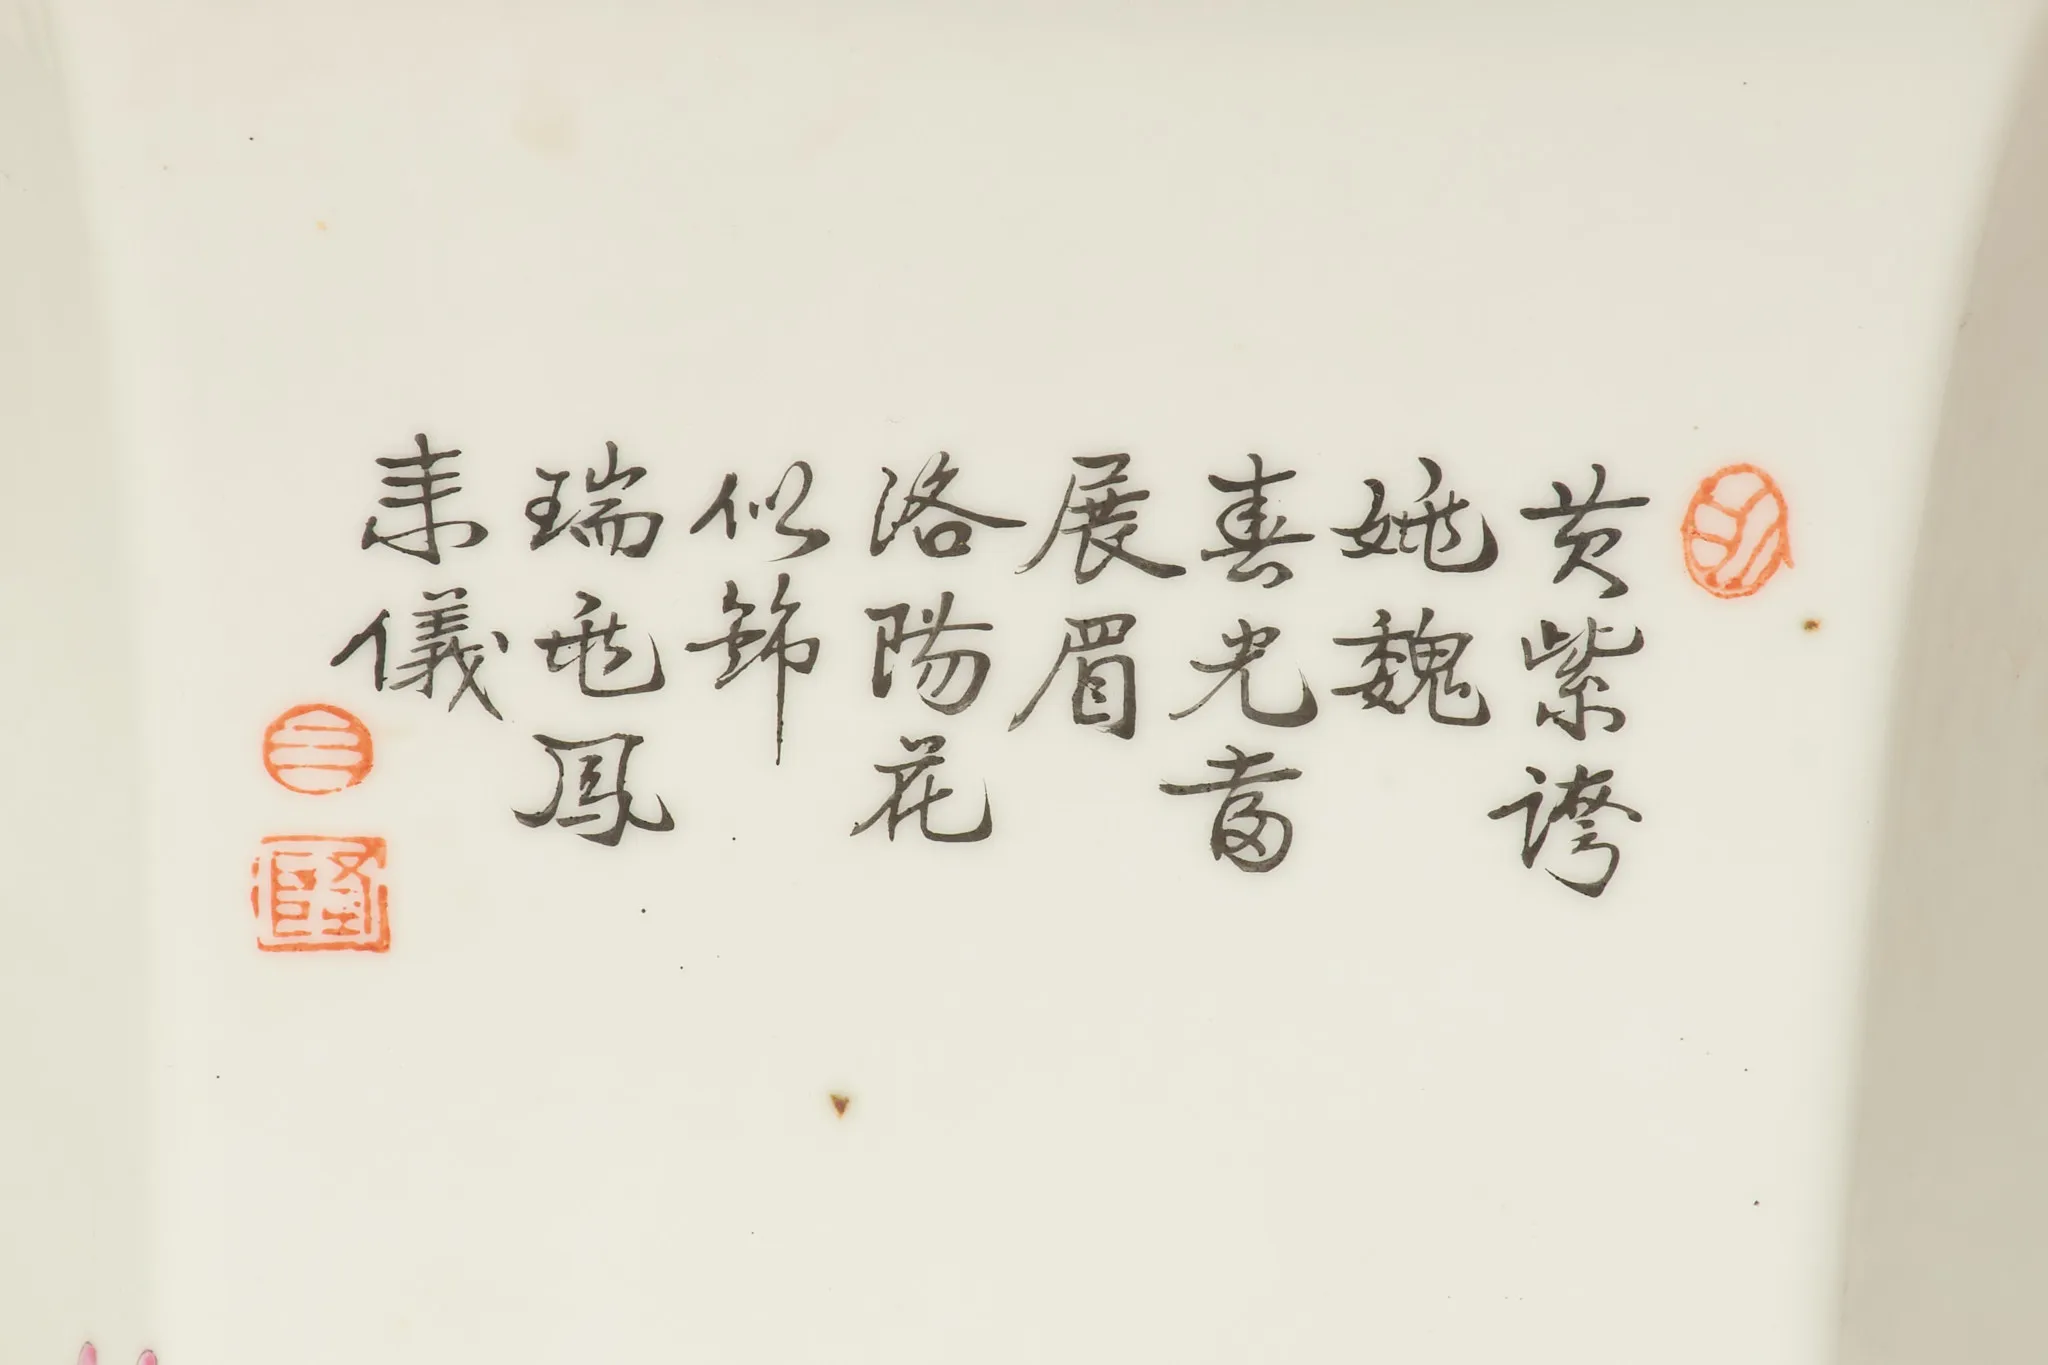 黄紫誇
姚魏
春光
展眉
洛陽花
似錦
瑞世鳳
来儀